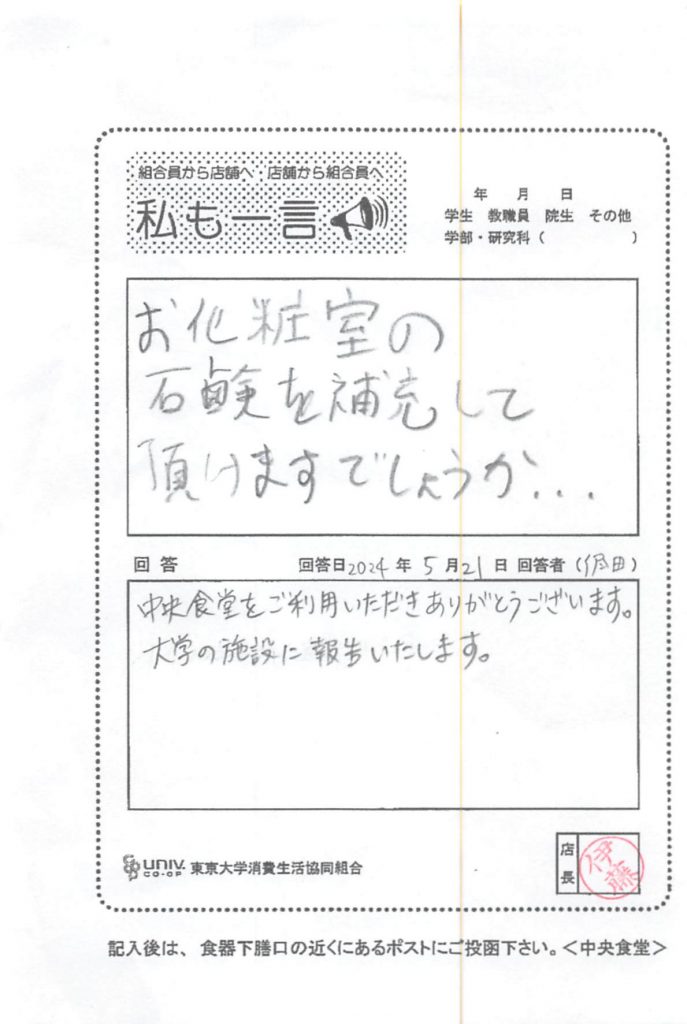 組合員から店舗へ・店舗から組合員へ
私も一言
年 月 日
学生 教職員 院生 その他
学部・研究科( )
お化粧室の
石鹸を補充して
頂けますでしょうか...
回答 回答日2024年5月21日 回答者( 田)
中央食堂をご利用いただきありがとうございます。
大学の施設に報告いたします。
UNIV. CO-OP 東京大学消費生活協同組合
店長 伊藤
記入後は、食器下膳口の近くにあるポストにご投函下さい。<中央食堂>